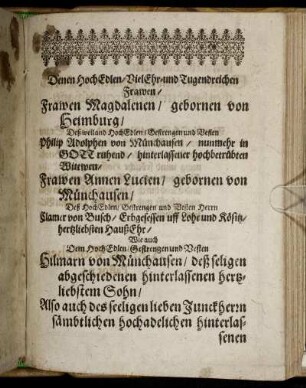 Denen HochEdlen/ VielEhr-und Tugendreichen
Frawen/
Frawen Magdalenen/ gebornen von
Heimburg/
Deß weiland HochEdlen/ Gestrengen und Vesten
Philip Adolphen von Münchausen/ nunmehr in
GOTT ruhend/ hinterlassener hochbetrübten
Wittwen/
Frawen Annen Lucien/ gebornen von
Münchausen/
Deß HochEdlen/ Gestrengen und Vesten Herrn
Clamer von Busch/ Erbgesessen uff Lohe und Kösitz/
hertzliebsten HaußEhr/
Wie auch
Dem HochEdlen/ Gestrengen und Vesten
Hilmarn von Münchausen/ deß seligen
abgeschiedenen hinterlassenen hertz-
liebstem Sohn/
Also auch des seeligen lieben Junckherrn
sämbtlichen hochadelichen hinterlas-
senen